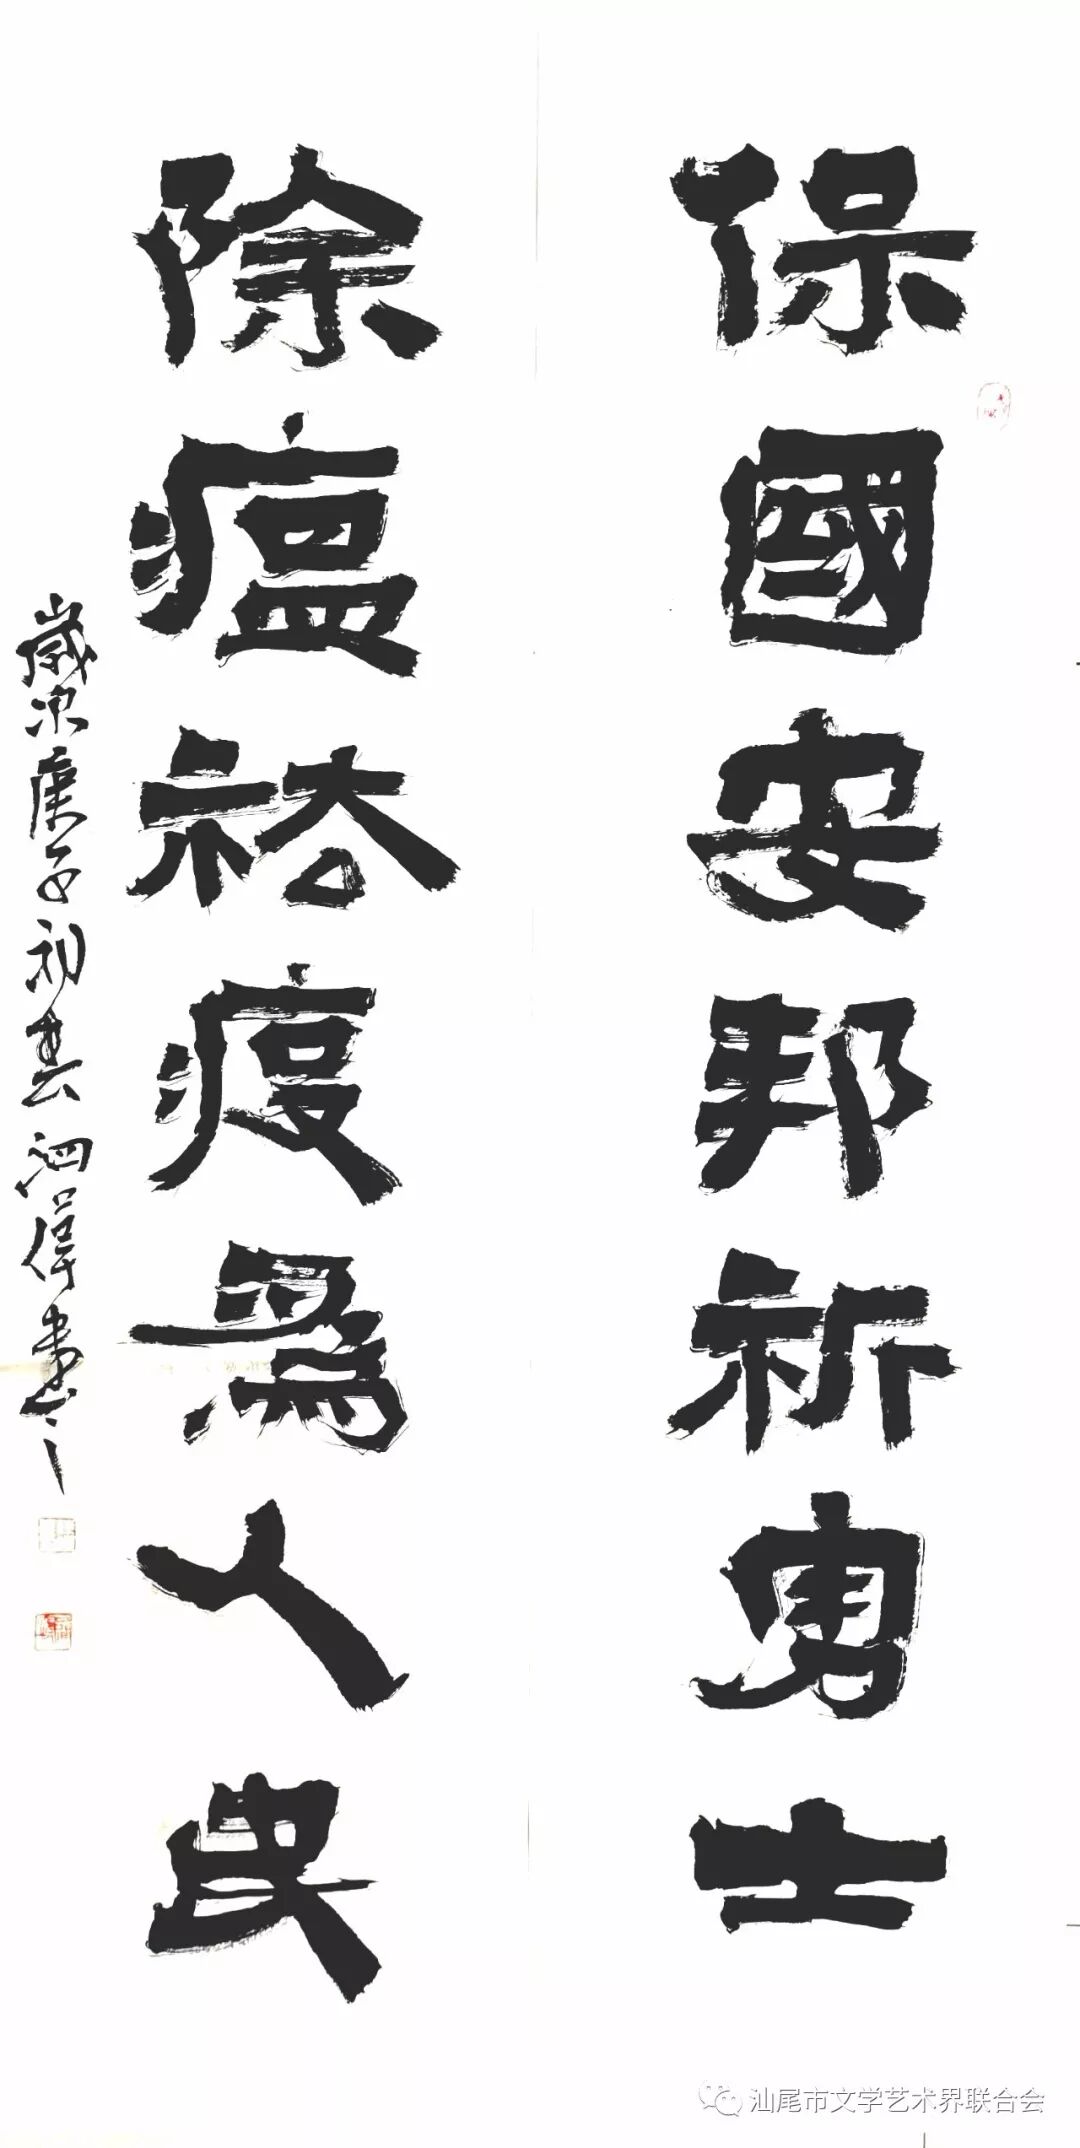 保國安邦祈勇士
除瘟祛疫爲人民
歲次庚子初春泗書
汕尾市文学艺术界联合会